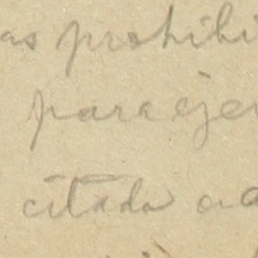 as prohibi
para ejer
citada ad